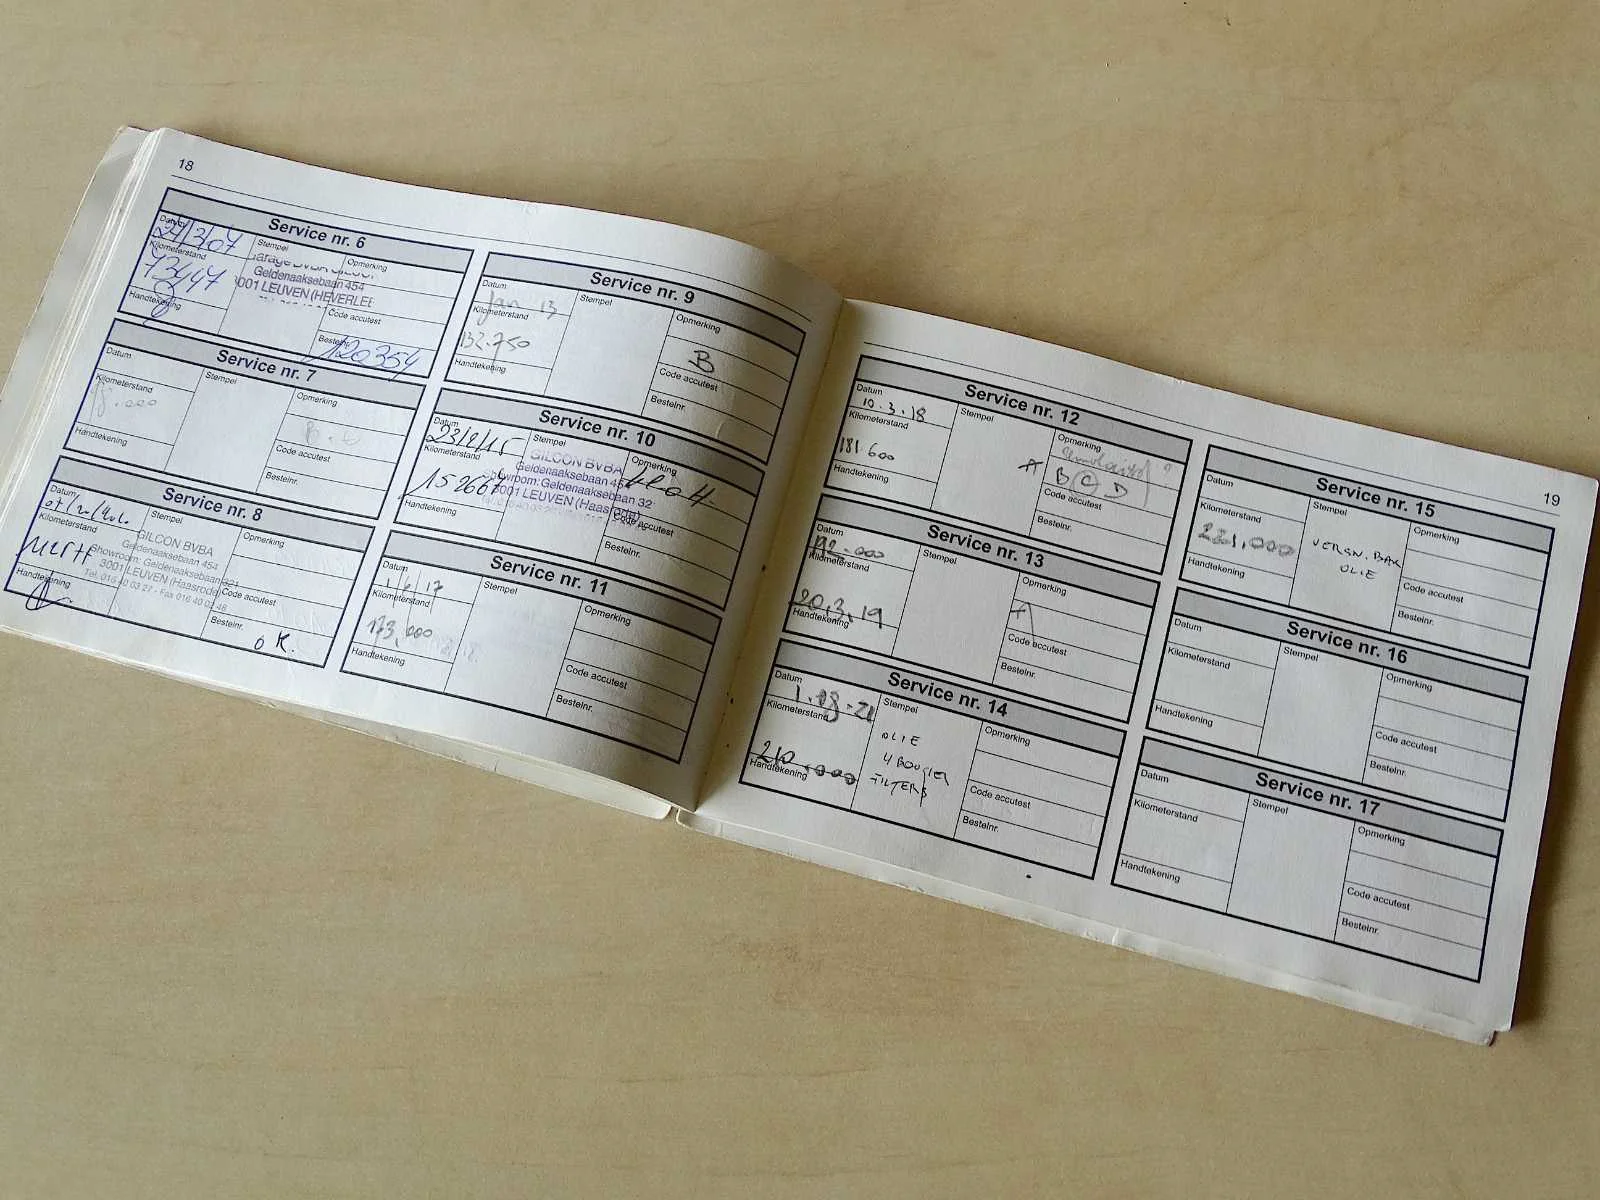 18
Service nr. 6
Datum
27/3/07
Stempel
Opmerking
Kilometerstand
73447
Geldenaaksebaan 454
3001 LEUVEN (HEVERLEE
Handtekening
Code accutest
Bestelnr.
120354
Service nr. 7
Datum
Stempel
Opmerking
Kilometerstand
Handtekening
Code accutest
Bestelnr.
Service nr. 8
Datum
Stempel
Opmerking
Kilometerstand
GILCON BVBA
Geldenaaksebaan 454
Showroom: Geldenaaksebaan 321
3001 LEUVEN (Haasrode)
Tel. 016 40 03 27 - Fax 016 40 02 48
Handtekening
Code accutest
Bestelnr.
OK.
Service nr. 9
Datum
Jan 13
Stempel
Opmerking
Kilometerstand
132.750
B
Handtekening
Code accutest
Bestelnr.
Service nr. 10
Datum
23/2/15
Stempel
Opmerking
Kilometerstand
152667
GILCON BVBA
Geldenaaksebaan 454
Showroom: Geldenaaksebaan 32
3001 LEUVEN (Haasrode)
Handtekening
Code accutest
Bestelnr.
Service nr. 11
Datum
1/6/17
Stempel
Opmerking
Kilometerstand
173.000
Handtekening
Code accutest
Bestelnr.
19
Service nr. 12
Datum
10.3.18
Stempel
Opmerking
Kilometerstand
181.600
A B C D
Handtekening
Code accutest
Bestelnr.
Service nr. 13
Datum
192.000
Stempel
Opmerking
Kilometerstand
20.3.19
A
Handtekening
Code accutest
Bestelnr.
Service nr. 14
Datum
1.08.21
Stempel
Opmerking
Kilometerstand
210.000
OLIE
4 BOUGIES
FILTERS
Handtekening
Code accutest
Bestelnr.
Service nr. 15
Datum
Stempel
Opmerking
Kilometerstand
221.000
VERSN. BAK
OLIE
Handtekening
Code accutest
Bestelnr.
Service nr. 16
Datum
Stempel
Opmerking
Kilometerstand
Handtekening
Code accutest
Bestelnr.
Service nr. 17
Datum
Stempel
Opmerking
Kilometerstand
Handtekening
Code accutest
Bestelnr.